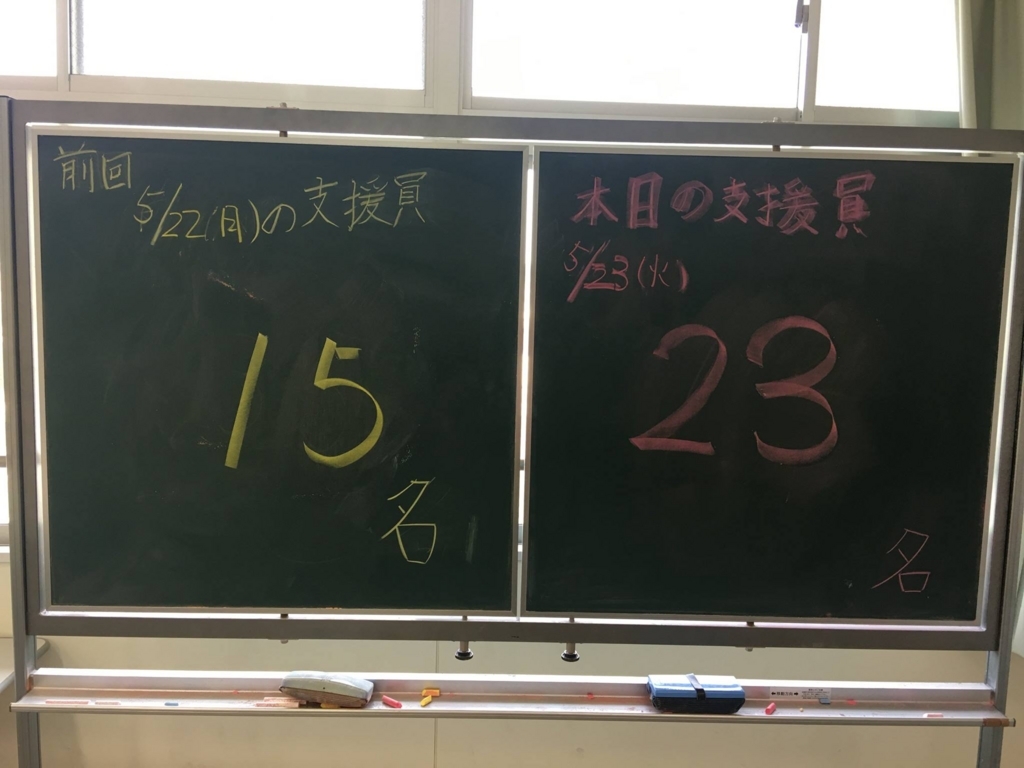 前回
5/22(月)の支援員
15
名
本日の支援員
5/23(火)
23
名